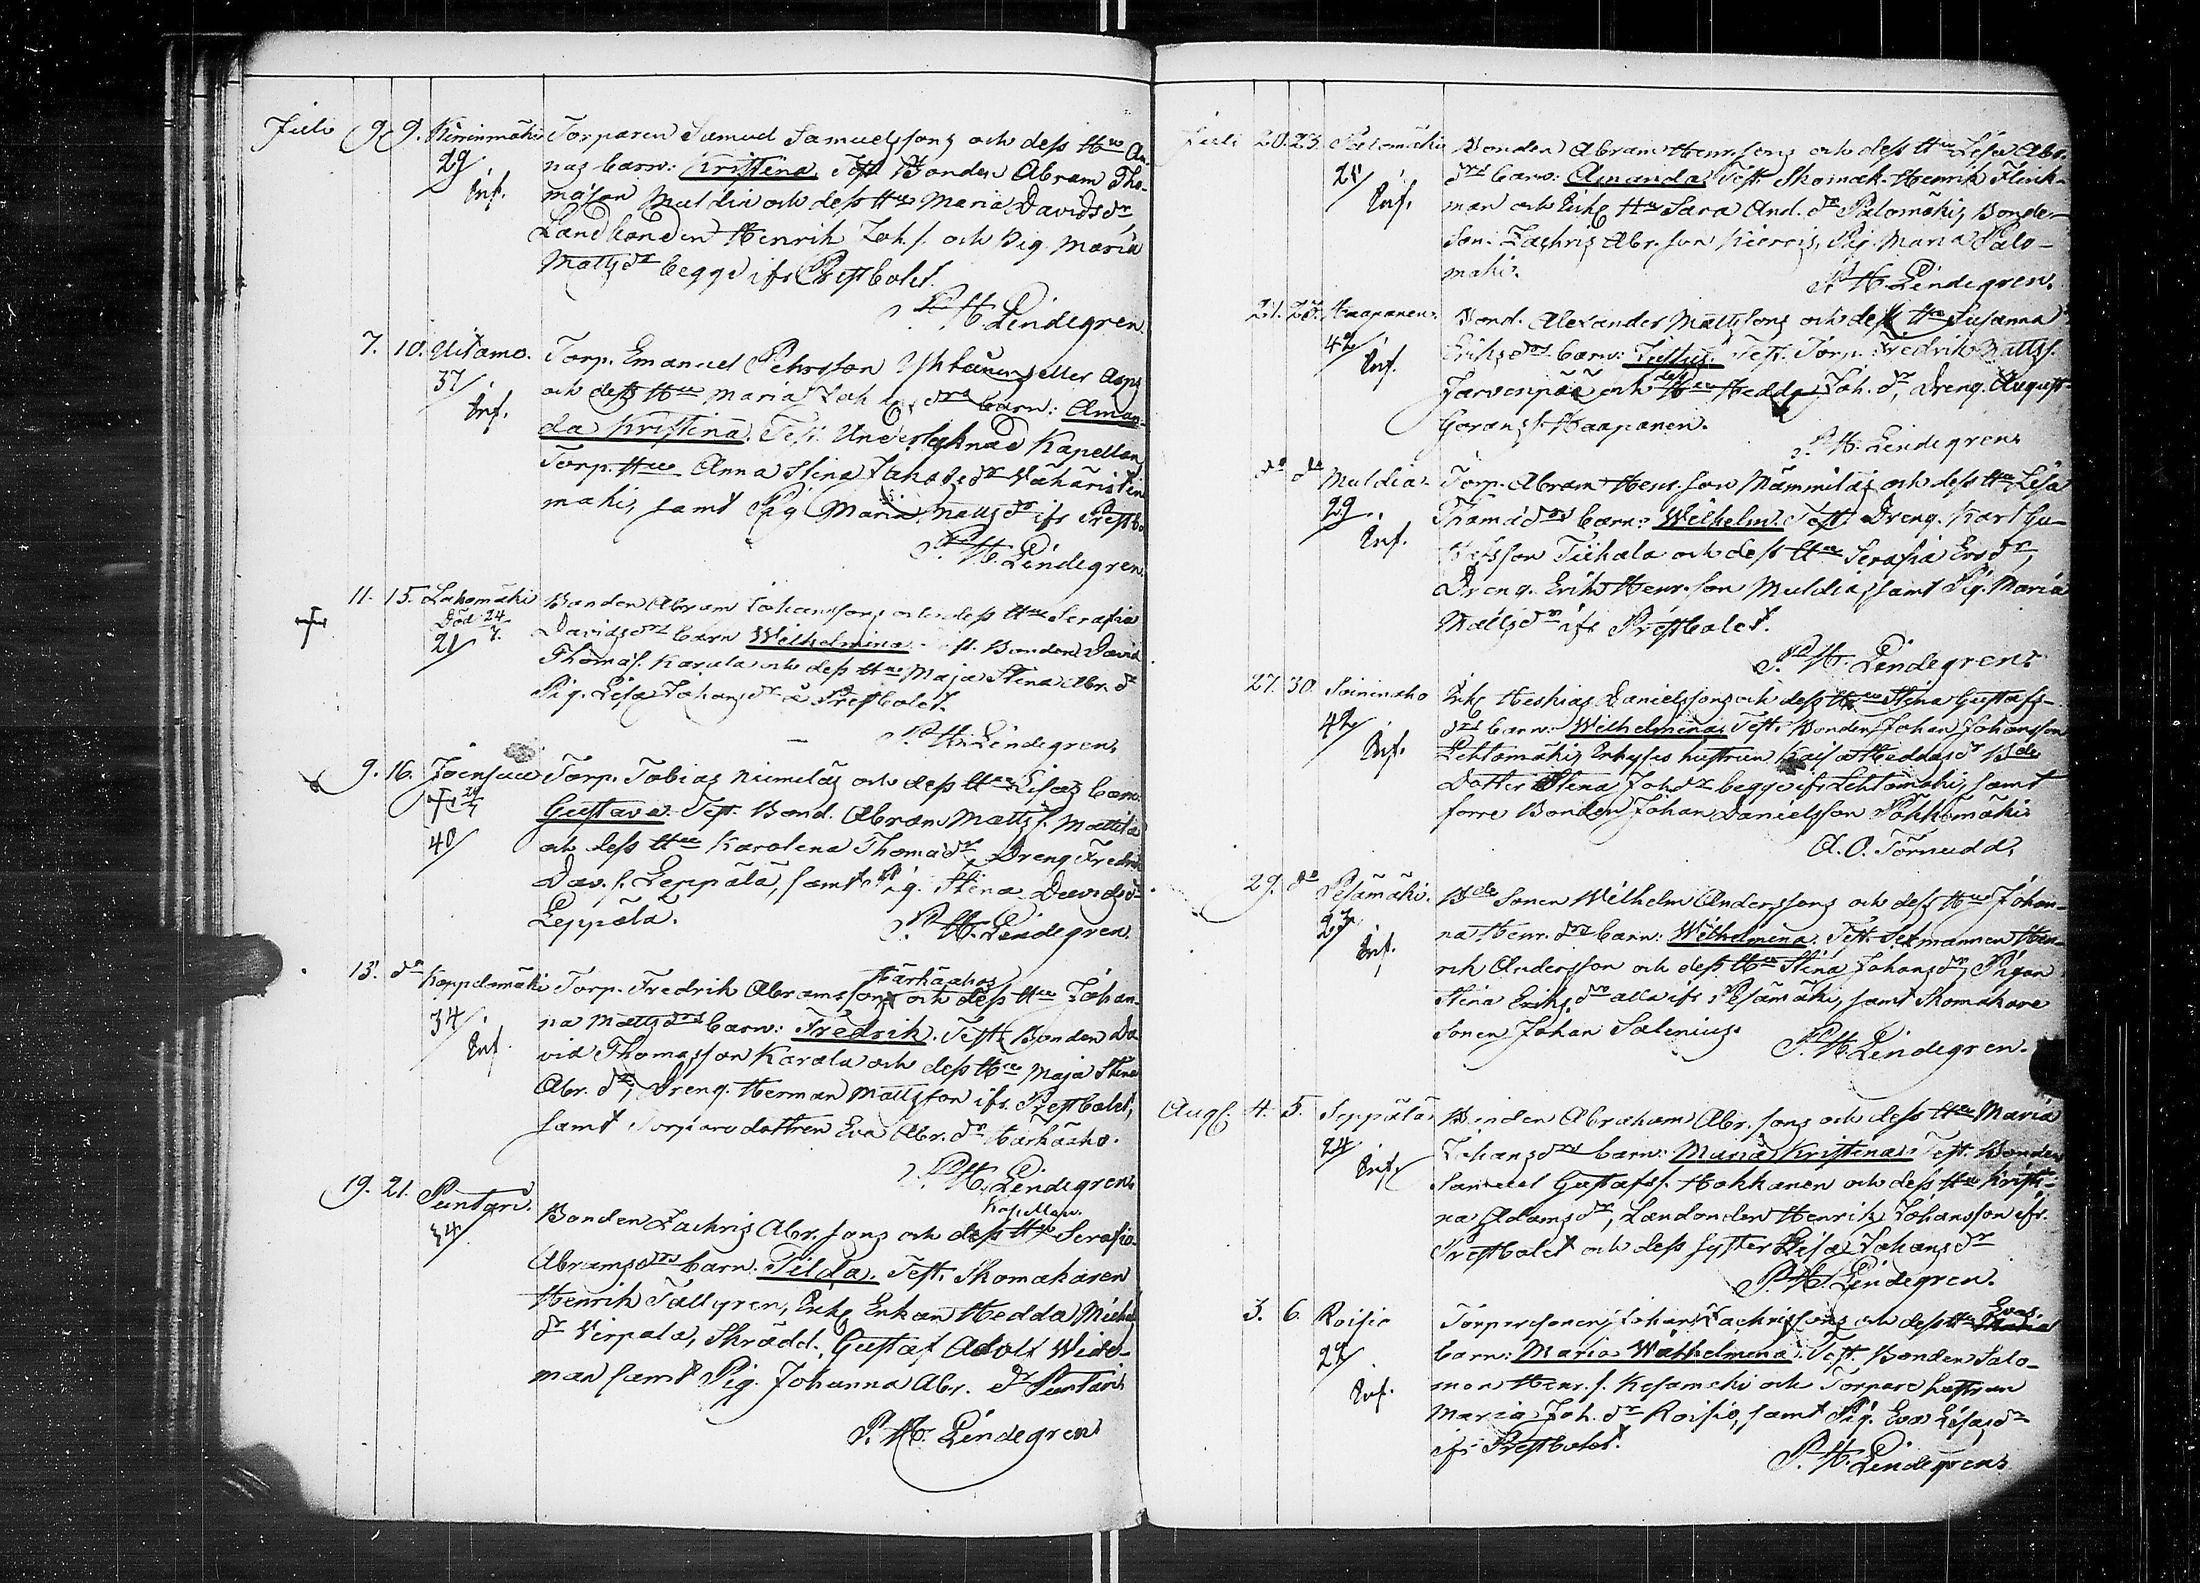 Juli 9 9. Kirrinmäki Torparen Samuel Samuelssons och dess Hu An-
29 nas barn: Kristina. Test. Bonden Abram Tho-
Inf. masson Muldia och dess Hu Maria Davidsdr,
Landbonden Henrik Joh. s. och Pig. Maria
Mattsdr begge ifr. Prestbolet.
P. H. Lindegren
7. 10. Uitamo. Torp. Emanuel Pehrsson eller Asps
37 och dess Hu Maria barn: Aman-
Inf. da Kristina. Test. Undertecknad Kapellan,
Torp. Hu Anna Stina
mäki, samt Pig. Maria Mattsdr ifr. Prestbo.
P. H. Lindegren.
11. 15. Lahomäki Bonden Abram Johanssons och dess Hu Serafia
Död 24/7. Davidsdrs barn Wilhelmina. Test. Bonden David
21 Thomas. Karala och dess Hu Maja Stina Abr. dr
Pig. Lisa Johansdr å Prestbolet.
P. H. Lindegren.
9. 16. Joensuu Torp. Tobias Niemiläs och dess Hu Lisas barn:
Gustava. Test. Bond. Abram Matts s. Mattila
40 och dess Hu Karolina Thomasdr, Dreng Fredrik
Dav. s. Leppälä, samt Pig. Stina Davidsdr
Leppälä.
P. H. Lindegren.
13. do Koppelomäki Torp. Fredrik Abramssons Kärkäahos och dess Hu Johan-
34 na Mattsdrs barn: Fredrik. Test. Bonden Da-
Inf. vid Thomasson Karala och dess Hu Maja Stina
Abr. dr, Dreng. Herman Mattsson ifr. Prestbolet,
samt Torparedottren Eva Abr. dr Kärkäaho.
P. H. Lindegren
Kapellan.
19. 21. Puntari. Bonden Zachris Abr. sons och dess Hu Serafia
34 Abramsdrs barn. Tilda. Test. Skomakaren
Henrik Tallgren, Enkan Hedda Michels
dr Virpala, Skrädd. Gustaf Adolf Wide-
man samt Pig. Johanna Abr. dr Puntari
P. H. Lindegren
Juli 20. 23. Palomäki Bonden Abram Henr. sons och dess Hu Lisa Abr.
21 drs barn: Amanda. Test. Skomak. Henrik Flink-
Inf. man och Hu Sara And. dr Palomäki, Bonde-
son. Zachris Abr. son Pig. Maria Palo-
mäki.
P. H. Lindegren.
21. 23. Haapanen. Bond. Alexander Mattssons och dess Hu Susanna
42 Eriksdrs barn: Justus. Test. Torp. Fredrik Matts s.
Inf. Jarvenpää och dess Hu Hedda Joh. dr, Dreng. August
Görans s. Haapanen.
P. H. Lindegren
do do Muldia. Torp. Abram Henr. son Mämmiläs och dess Hu Lisa
29. Thomasdrs barn: Wilhelm. Test. Dreng. Karl Gu-
Inf. Tiihala och dess Hu Serafia dr,
Dreng. Erik Henr. son Muldia, samt Pig. Maria
Mattsdr ifr. Prestbolet.
P. H. Lindegren
27. 30. Soininaho Heskias Danielssons och dess Hu Stina Gustafs-
42 drs barn: Wilhelmina. Test. Bonden Johan Johansson
Inf. Lehtomäki, hustrun Kaisa dr Bde
Dotter Stina Joh. dr begge ifr. Lehtomäki, samt
förre Bonden Johan Danielsson Pökkömäki
A. O. Törnudd.
29. do Pesämäki. Bde Sonen Wilhelm Anderssons och dess Hu Johan-
23 na Henr. drs barn: Wilhelmina. Test. Sexmannen Hen-
Inf. rik Andersson och dess Hu Stina Johansdr, Pigan
Stina Eriksdr alla ifr. Pesämäki, samt Skomakare
Sonen Johan Salenius.
P. H. Lindegren.
Aug. 4. 5. Seppälä Bonden Abraham Abr. sons och dess Hu Maria
24 Johansdrs barn: Maria Kristina. Test. Bonden
Inf. Samuel Gustafs s. Hokkanen och dess Hu Kristi-
na Adamsdr, Henrik Johansson ifr.
Prestbolet och dess syster Lisa Johansdr
P. H. Lindegren.
3. 6. Roisio Torparesonen Johan Zachrissons och dess Hu Evas
22 barn: Maria Wilhelmina. Test. Bonden Salo-
Inf. mon Henr. s. Kesämäki och Torpare hustrun
Maria Joh. dr Roisio, samt Pig. Eva dr
ifr. Prestbolet.
P. H. Lindegren